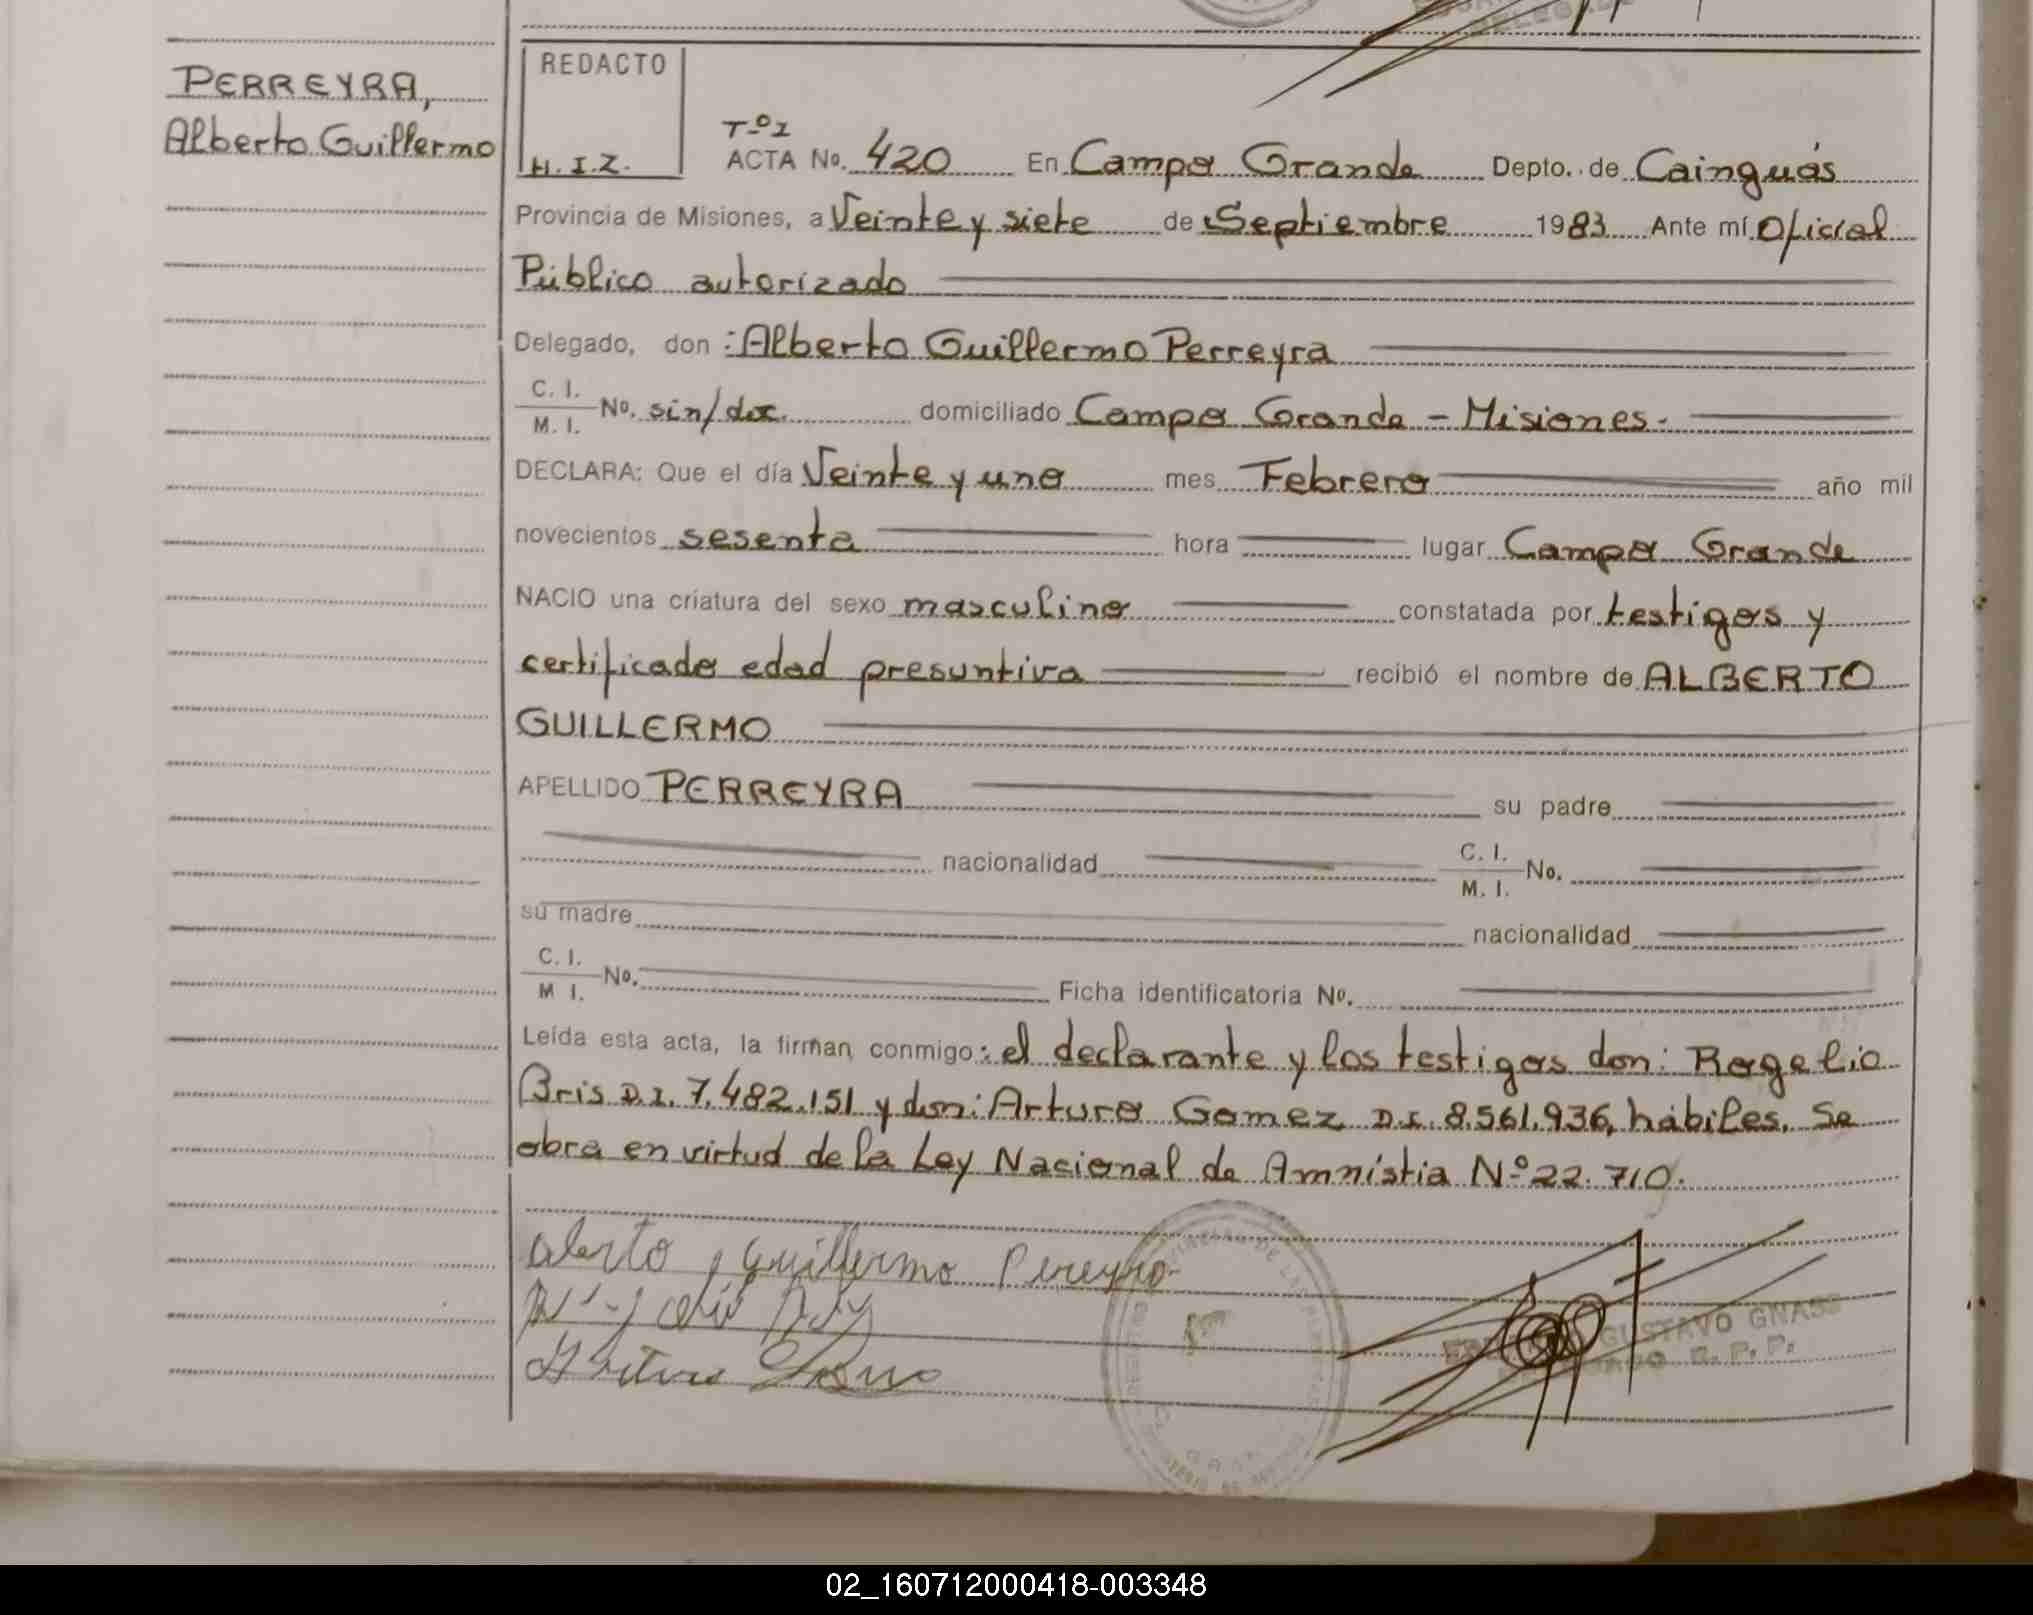 PERREYRA,
Alberto Guillermo
REDACTO
H.I.Z.
Tº1
ACTA No. 420 En Campo Grande Depto. de Cainguás
Provincia de Misiones, a Veinte y siete de Septiembre 1983 Ante mí Oficial
Público autorizado
Delegado, don: Alberto Guillermo Perreyra
C. I.
M. I. No. sin/doc. domiciliado Campo Grande - Misiones.
DECLARA: Que el día Veinte y uno mes Febrero año mil
novecientos sesenta hora lugar Campo Grande
NACIO una criatura del sexo masculino constatada por testigos y
certificado edad presuntiva recibió el nombre de ALBERTO
GUILLERMO
APELLIDO PERREYRA su padre
nacionalidad C. I. M. I. No.
su madre nacionalidad
C. I. M I. No. Ficha identificatoria No.
Leída esta acta, la firman conmigo: el declarante y los testigos don: Rogelio
Bris D.I. 7.482.151 y don: Arturo Gomez D.I. 8.561.936, hábiles. Se
obra en virtud de la Ley Nacional de Amnistia Nº 22.710.
alerto Guillermo Pereyra
GUSTAVO GNASS
R. P. P.
02_160712000418-003348